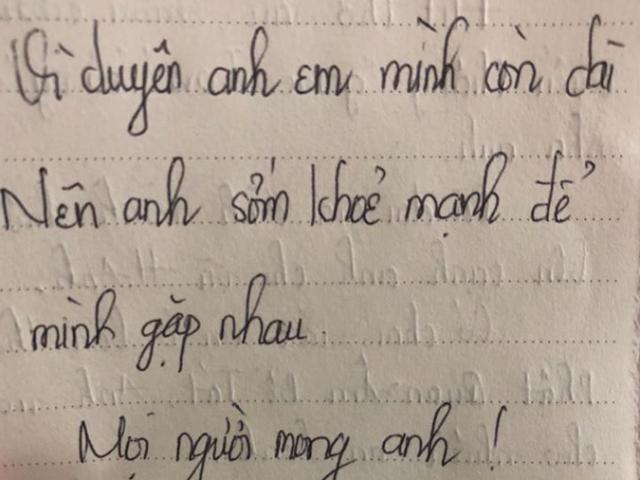 Vì duyên anh em mình còn dài
Nên anh sớm khoẻ mạnh để
mình gặp nhau.
Mọi người mong anh!